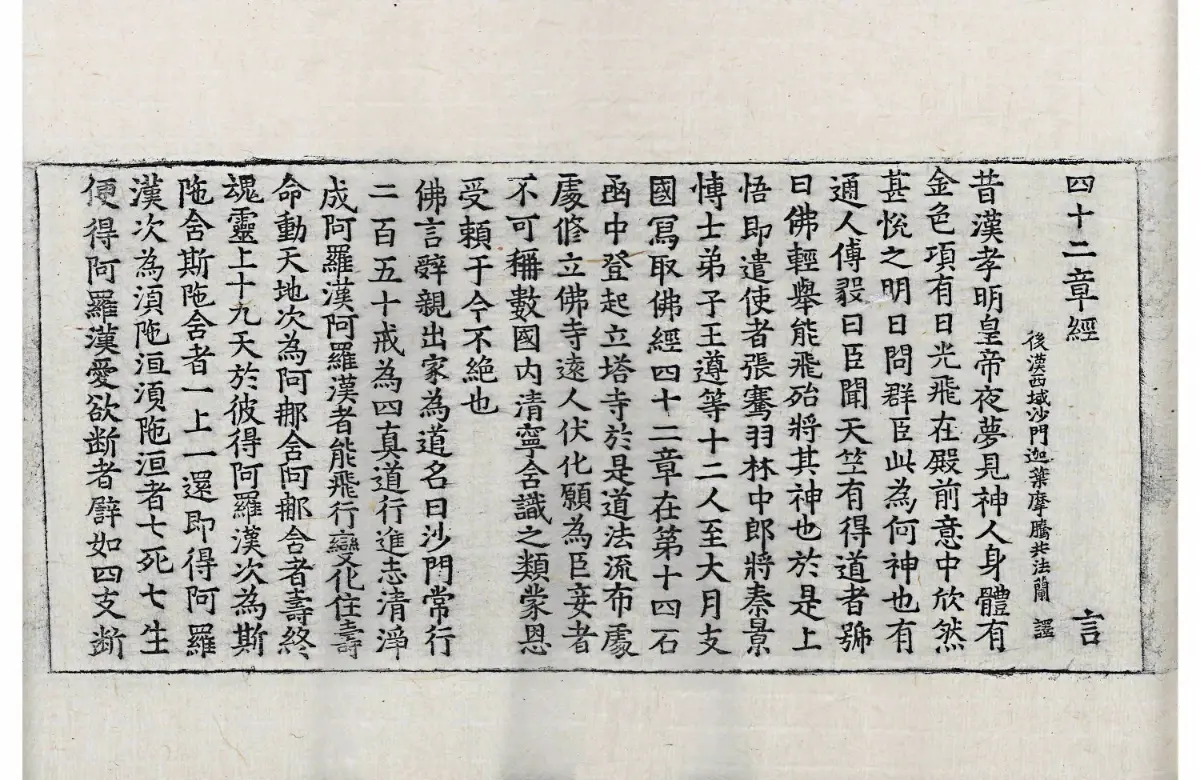 四十二章經 言
後漢西域沙門迦葉摩騰共法蘭 譯
昔漢孝明皇帝夜夢見神人身體有
金色項有日光飛在殿前意中欣然
甚悅之明日問群臣此為何神也有
通人傅毅曰臣聞天竺有得道者號
曰佛輕舉能飛殆將其神也於是上
悟即遣使者張騫羽林中郎將秦景
博士弟子王遵等十二人至大月支
國寫取佛經四十二章在第十四石
函中登起立塔寺於是道法流布處
處修立佛寺遠人伏化願為臣妾者
不可稱數國內清寧含識之類蒙恩
受賴于今不絕也
佛言辭親出家為道名曰沙門常行
二百五十戒為四真道行進志清淨
成阿羅漢阿羅漢者能飛行變化住壽
命動天地次為阿那含阿那含者壽終
魂靈上十九天於彼得阿羅漢次為斯
陁含斯陁含者一上一還即得阿羅
漢次為湏陁洹湏陁洹者七死七生
便得阿羅漢愛欲断者譬如四支断